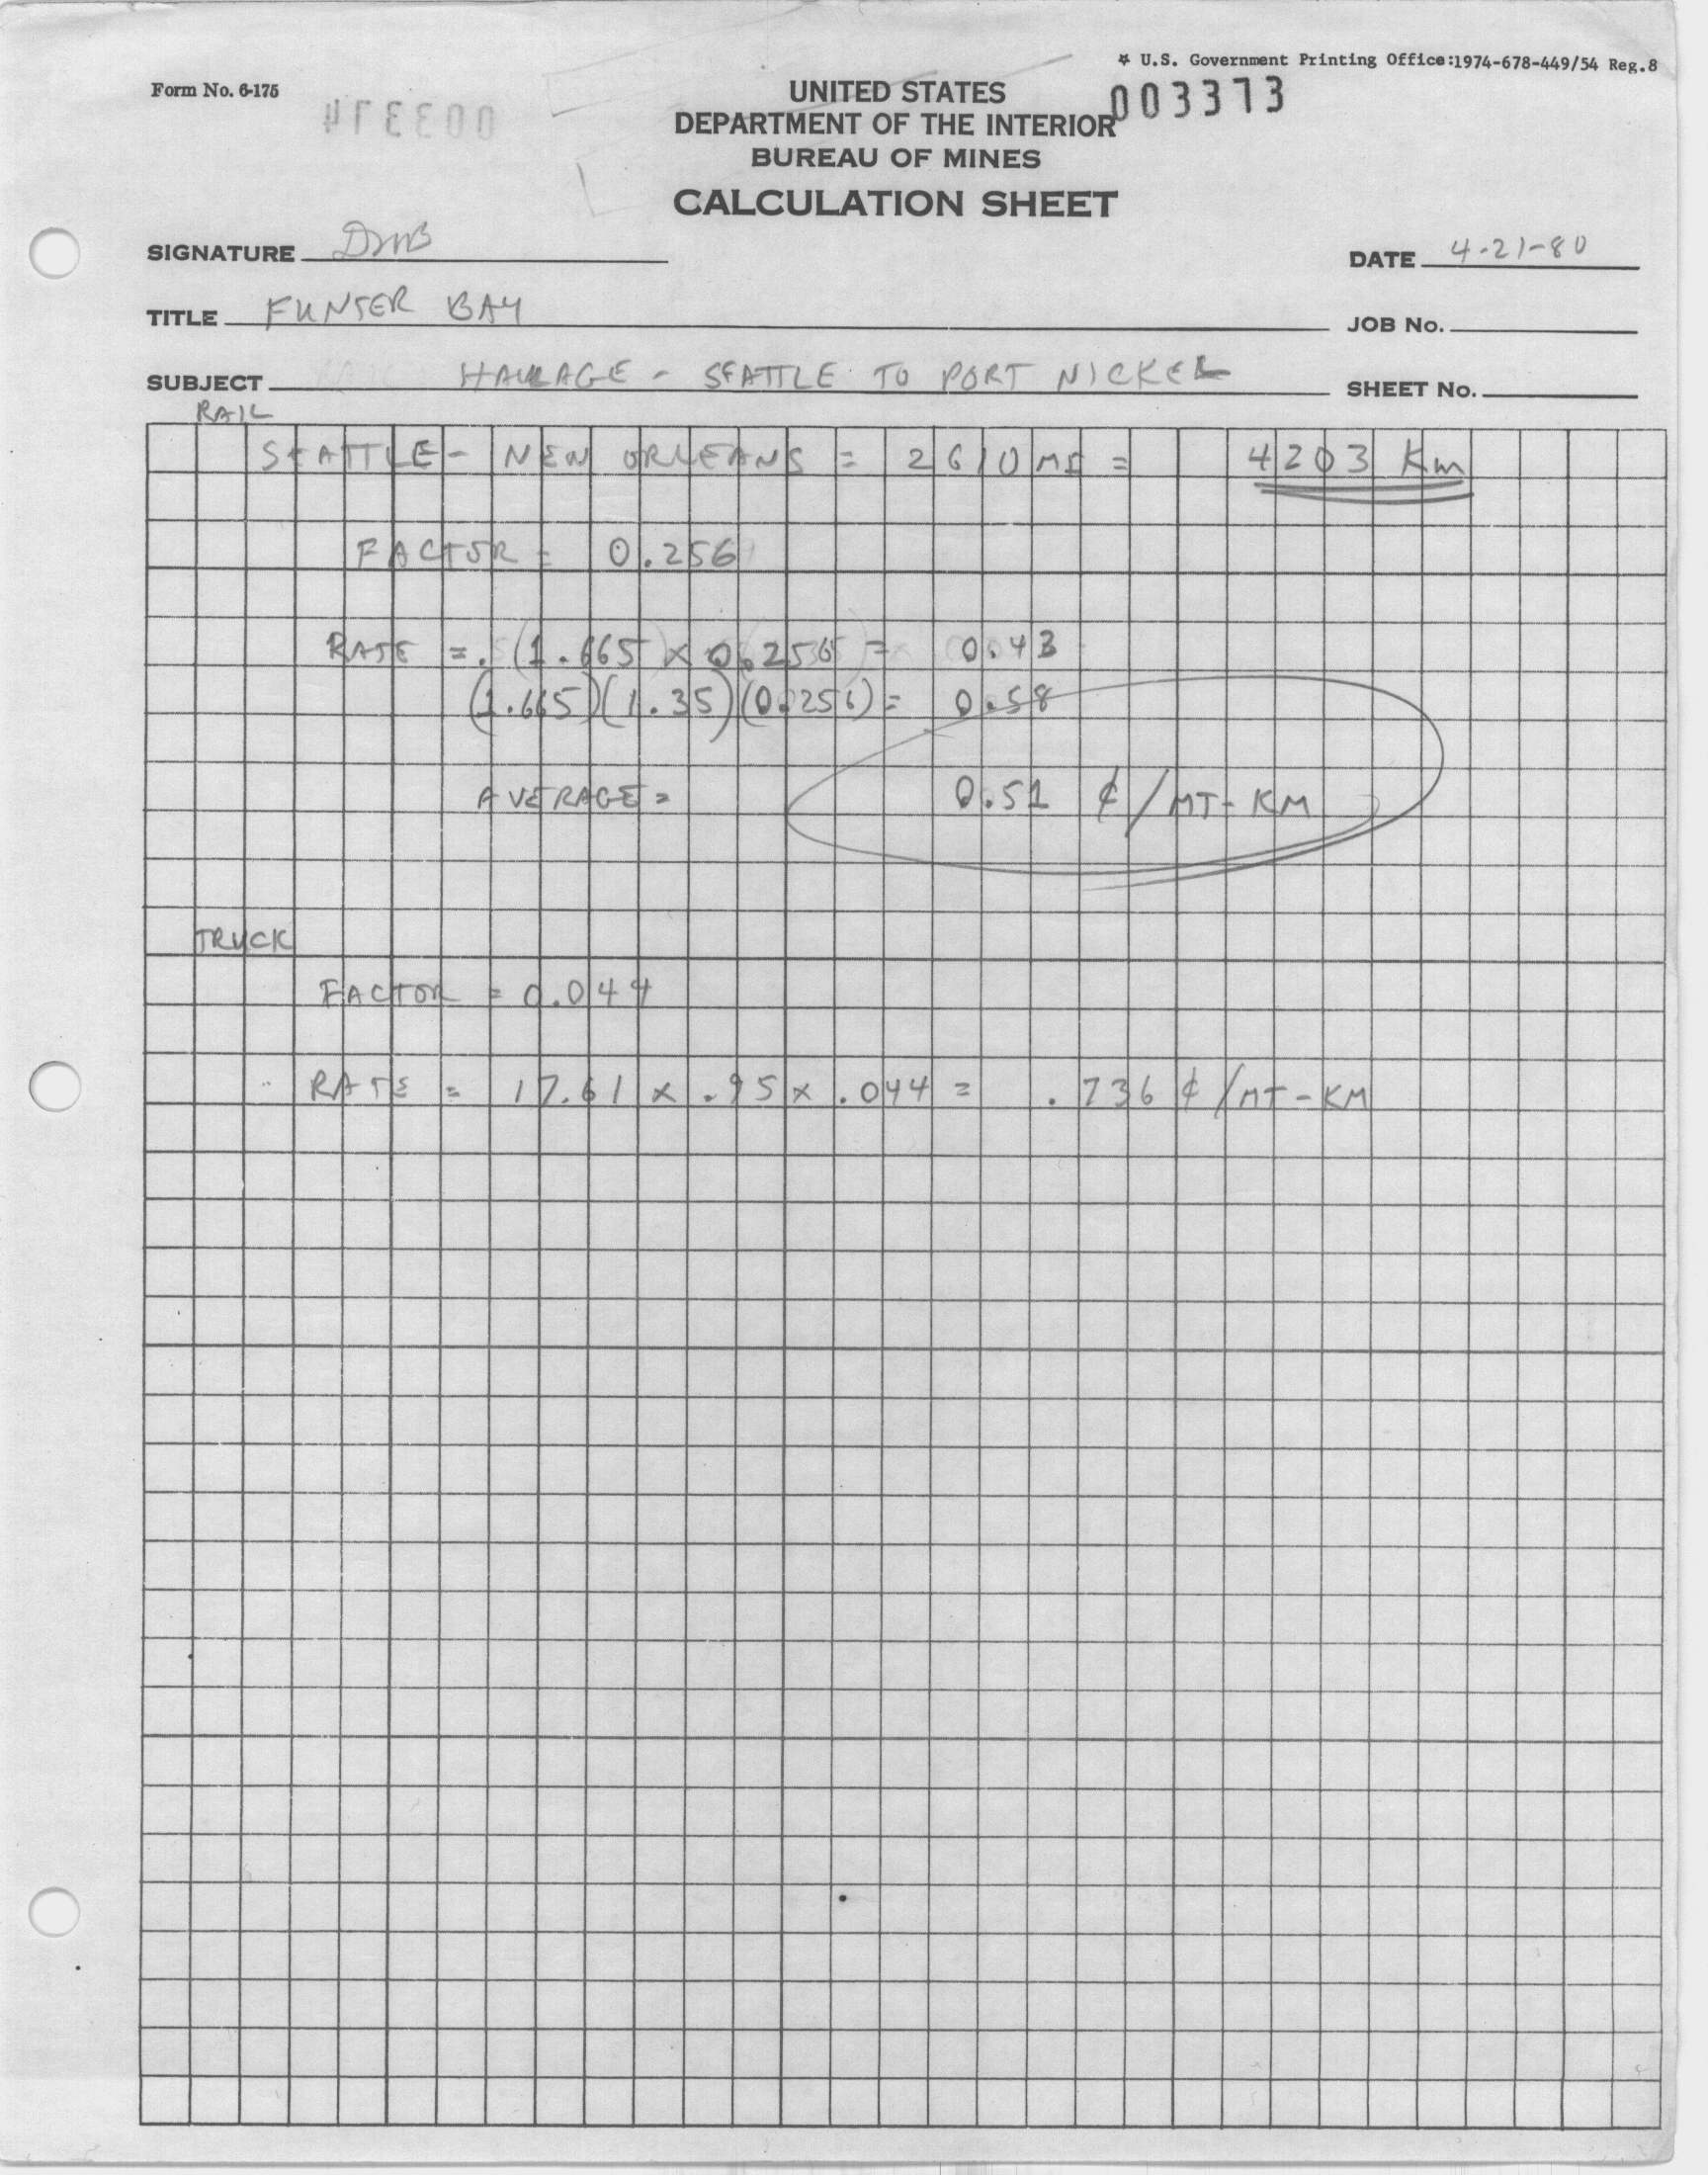 * U.S. Government Printing Office:1974-678-449/54 Reg.8
Form No. 6-175
003374
UNITED STATES
003373
DEPARTMENT OF THE INTERIOR
BUREAU OF MINES
CALCULATION SHEET
SIGNATURE DMB
DATE 4-21-80
TITLE FUNTER BAY
JOB No.
SUBJECT HAULAGE - SEATTLE TO PORT NICKEL
SHEET No.
RAIL
SEATTLE - NEW ORLEANS = 2610 MI = 4203 Km
FACTOR = 0.256
RATE = (1.665 x 0.256) = 0.43
(1.665)(1.35)(0.256) = 0.58
AVERAGE = 0.51 ¢/MT-KM
TRUCK
FACTOR = 0.044
RATE = 17.61 x .95 x .044 = .736 ¢/MT-KM